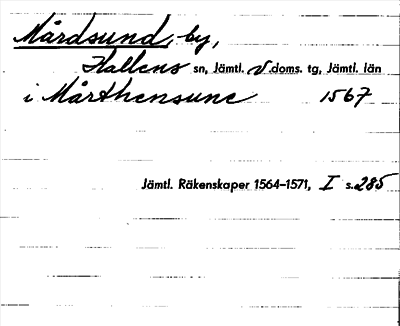 Mårdsund, by,
Hallens sn, Jämtl. V. doms. tg, Jämtl. län
i Mårthensune 1567
Jämtl. Räkenskaper 1564–1571, I s. 285